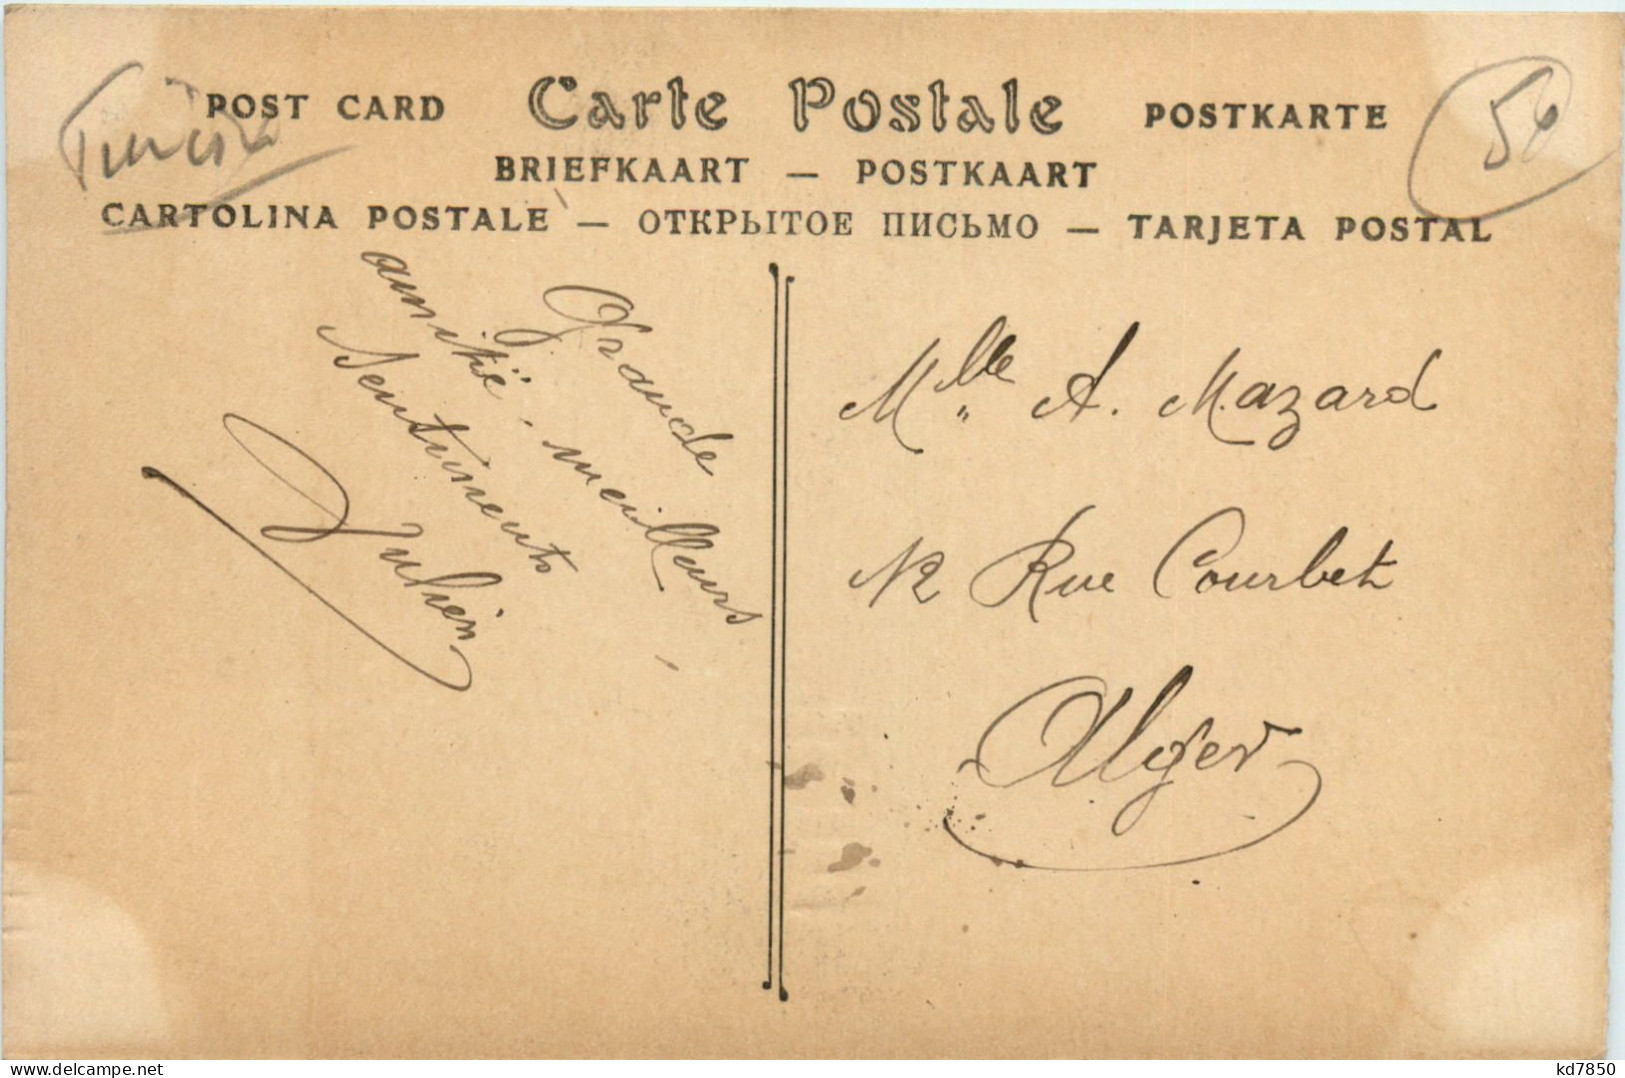 Tunisie
POST CARD Carte Postale POSTKARTE
50
BRIEFKAART — POSTKAART
CARTOLINA POSTALE — ОТКРЫТОЕ ПИСЬМО — TARJETA POSTAL
Grande
amitié, meilleurs
Sentiments
Julien
Mlle A. Mazard
12 Rue Courbet
Alger
www.delcampe.net
kd7850